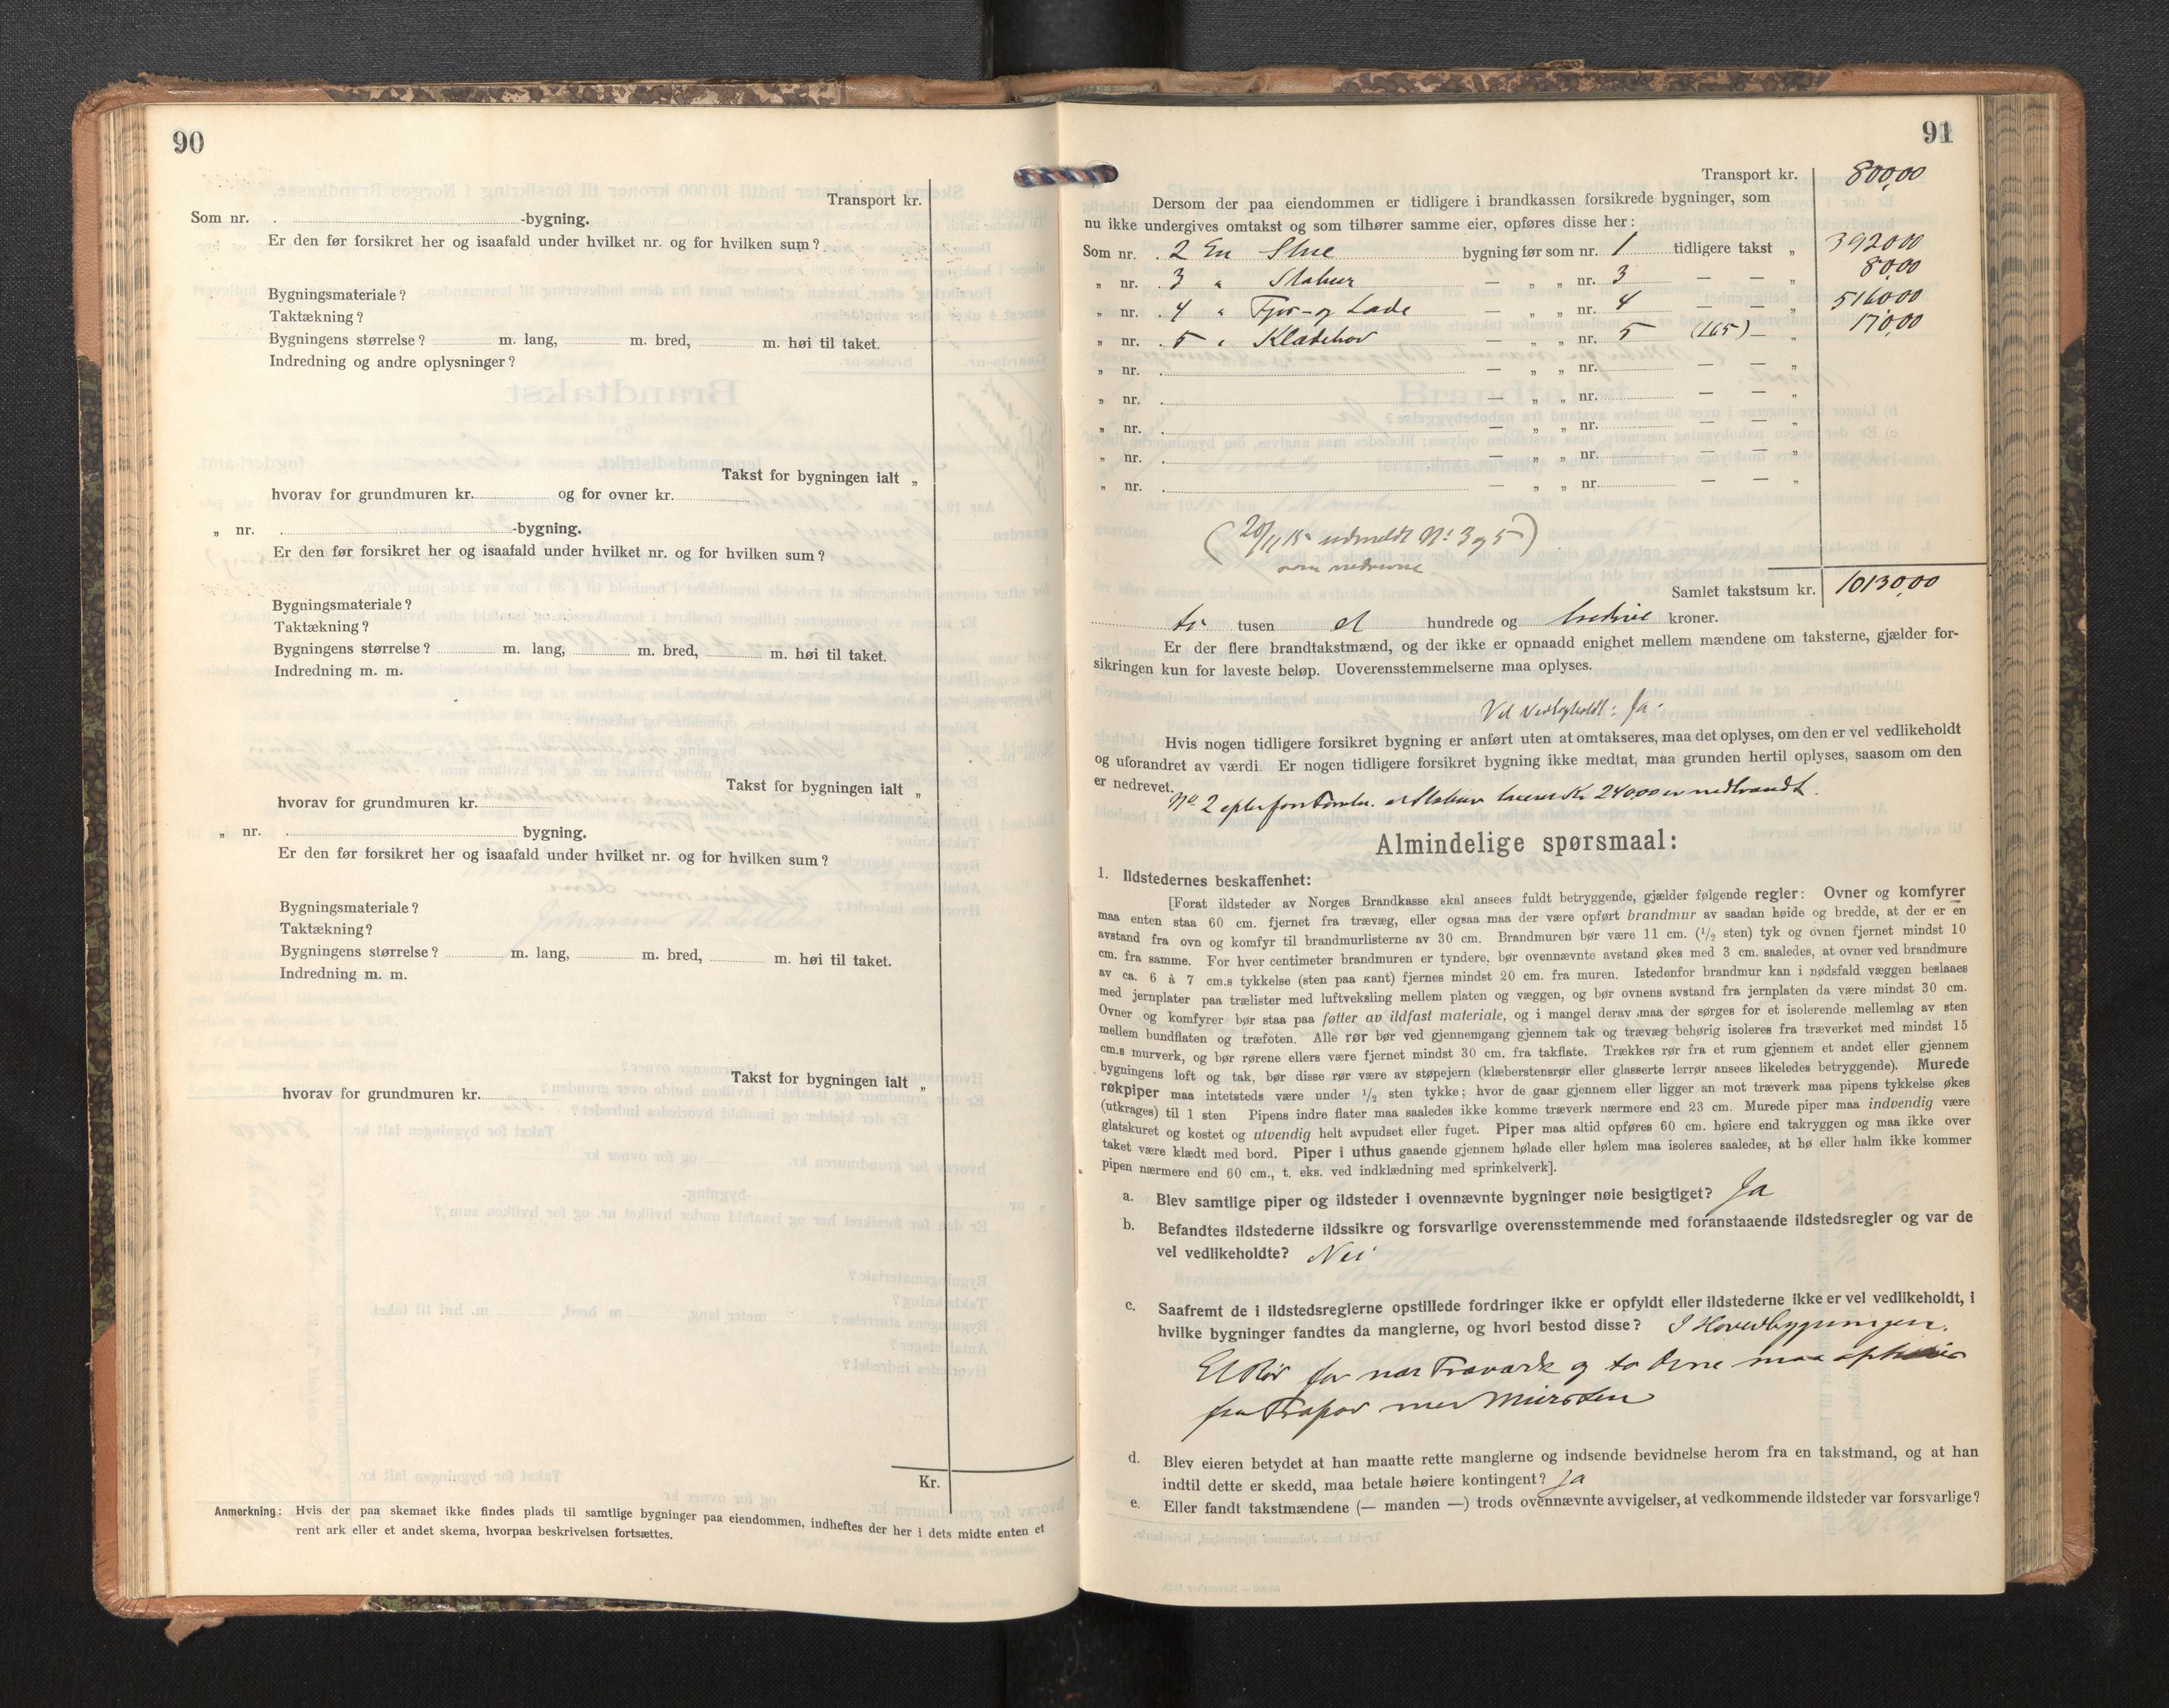 90
Transport kr.
Som nr. . -bygning.
Er den før forsikret her og isaafald under hvilket nr. og for hvilken sum?
Bygningsmateriale?
Taktækning?
Bygningens størrelse? m. lang, m. bred, m. høi til taket.
Indredning og andre oplysninger?
Takst for bygningen ialt „
hvorav for grundmuren kr. og for ovner kr.
„ nr. . -bygning.
Er den før forsikret her og isaafald under hvilket nr. og for hvilken sum?
Bygningsmateriale?
Taktækning?
Bygningens størrelse? m. lang, m. bred, m. høi til taket.
Indredning m. m.
Takst for bygningen ialt „
hvorav for grundmuren kr.
„ nr. . bygning.
Er den før forsikret her og isaafald under hvilket nr. og for hvilken sum?
Bygningsmateriale?
Taktækning?
Bygningens størrelse? m. lang, m. bred, m. høi til taket.
Indredning m. m.
Takst for bygningen ialt „
hvorav for grundmuren kr.
Kr.
Anmerkning: Hvis der paa skemaet ikke findes plads til samtlige bygninger paa eiendommen, indheftes der her i dets midte enten et
rent ark eller et andet skema, hvorpaa beskrivelsen fortsættes.
91
Transport kr. 800,00
Dersom der paa eiendommen er tidligere i brandkassen forsikrede bygninger, som
nu ikke undergives omtakst og som tilhører samme eier, opføres disse her:
Som nr. . 2 En Stue bygning før som nr. 1 tidligere takst „ 3920,00
„ nr. . 3 „ Stabur — „ „ nr. 3 — — „ 80,00
„ nr. . 4 „ Fjøs- og Lade — „ „ nr. 4 — — „ 5160,00
„ nr. . 5 „ — „ „ nr. 5 (165) — „ 170,00
„ nr. . — „ „ nr. — — „
„ nr. . — „ „ nr. — — „
„ nr. . — „ „ nr. — — „
„ nr. . — „ „ nr. — — „
„ nr. . — „ „ nr. — — „
(20/11 15 udmeldt No 3 og 5)
som nedrevne
Samlet takstsum kr. 10130,00
ti tusen et hundrede og tredive kroner.
Er der flere brandtakstmænd, og der ikke er opnaadd enighet mellem mændene om taksterne, gjælder for-
sikringen kun for laveste beløp. Uoverensstemmelserne maa oplyses.
Vel Vedligeholdt: Ja.
Hvis nogen tidligere forsikret bygning er anført uten at omtakseres, maa det oplyses, om den er vel vedlikeholdt
og uforandret av værdi. Er nogen tidligere forsikret bygning ikke medtat, maa grunden hertil oplyses, saasom om den
er nedrevet.
No 2 efter et Stabur Kr 240,00 er nedbrændt.
Almindelige spørsmaal:
1. Ildstedernes beskaffenhet:
[Forat ildsteder av Norges Brandkasse skal ansees fuldt betryggende, gjælder følgende regler: Ovner og komfyrer
maa enten staa 60 cm. fjernet fra trævæg, eller ogsaa maa der være opført brandmur av saadan høide og bredde, at der er en
avstand fra ovn og komfyr til brandmurlisterne av 30 cm. Brandmuren bør være 11 cm. (1/2 sten) tyk og ovnen fjernet mindst 10
cm. fra samme. For hver centimeter brandmuren er tyndere, bør ovennævnte avstand økes med 3 cm. saaledes, at ovner ved brandmure
av ca. 6 à 7 cm.s tykkelse (sten paa kant) fjernes mindst 20 cm. fra muren. Istedenfor brandmur kan i nødsfald væggen beslaaes
med jernplater paa trælister med luftveksling mellem platen og væggen, og bør ovnens avstand fra jernplaten da være mindst 30 cm.
Ovner og komfyrer bør staa paa føtter av ildfast materiale, og i mangel derav maa der sørges for et isolerende mellemlag av sten
mellem bundflaten og træfoten. Alle rør bør ved gjennemgang gjennem tak og trævæg behørig isoleres fra træverket med mindst 15
cm.s murverk, og bør rørene ellers være fjernet mindst 30 cm. fra takflate. Trækkes rør fra et rum gjennem et andet eller gjennem
bygningens loft og tak, bør disse rør være av støpejern (klæberstensrør eller glasserte lerrør ansees likeledes betryggende). Murede
røkpiper maa intetsteds være under 1/2 sten tykke; hvor de gaar gjennem eller ligger an mot træverk maa pipens tykkelse økes
(utkrages) til 1 sten Pipens indre flater maa saaledes ikke komme træverk nærmere end 23 cm. Murede piper maa indvendig være
glatskuret og kostet og utvendig helt avpudset eller fuget. Piper maa altid opføres 60 cm. høiere end takryggen og maa ikke over
taket være klædt med bord. Piper i uthus gaaende gjennem hølade eller hølem maa isoleres saaledes, at hø eller halm ikke kommer
pipen nærmere end 60 cm., t. eks. ved indklædning med sprinkelverk].
a. Blev samtlige piper og ildsteder i ovennævnte bygninger nøie besigtiget? Ja
b. Befandtes ildstederne ildssikre og forsvarlige overensstemmende med foranstaaende ildstedsregler og var de
vel vedlikeholdte? Nei
c. Saafremt de i ildstedsreglerne opstillede fordringer ikke er opfyldt eller ildstederne ikke er vel vedlikeholdt, i
hvilke bygninger fandtes da manglerne, og hvori bestod disse? I Hovedbygningen.
Et Rør for nær Træværk og to Ovne maa
fra Træfod med Mursten
d. Blev eieren betydet at han maatte rette manglerne og indsende bevidnelse herom fra en takstmand, og at han
indtil dette er skedd, maa betale høiere kontingent? Ja
e. Eller fandt takstmændene (— manden —) trods ovennævnte avvigelser, at vedkommende ildsteder var forsvarlige?